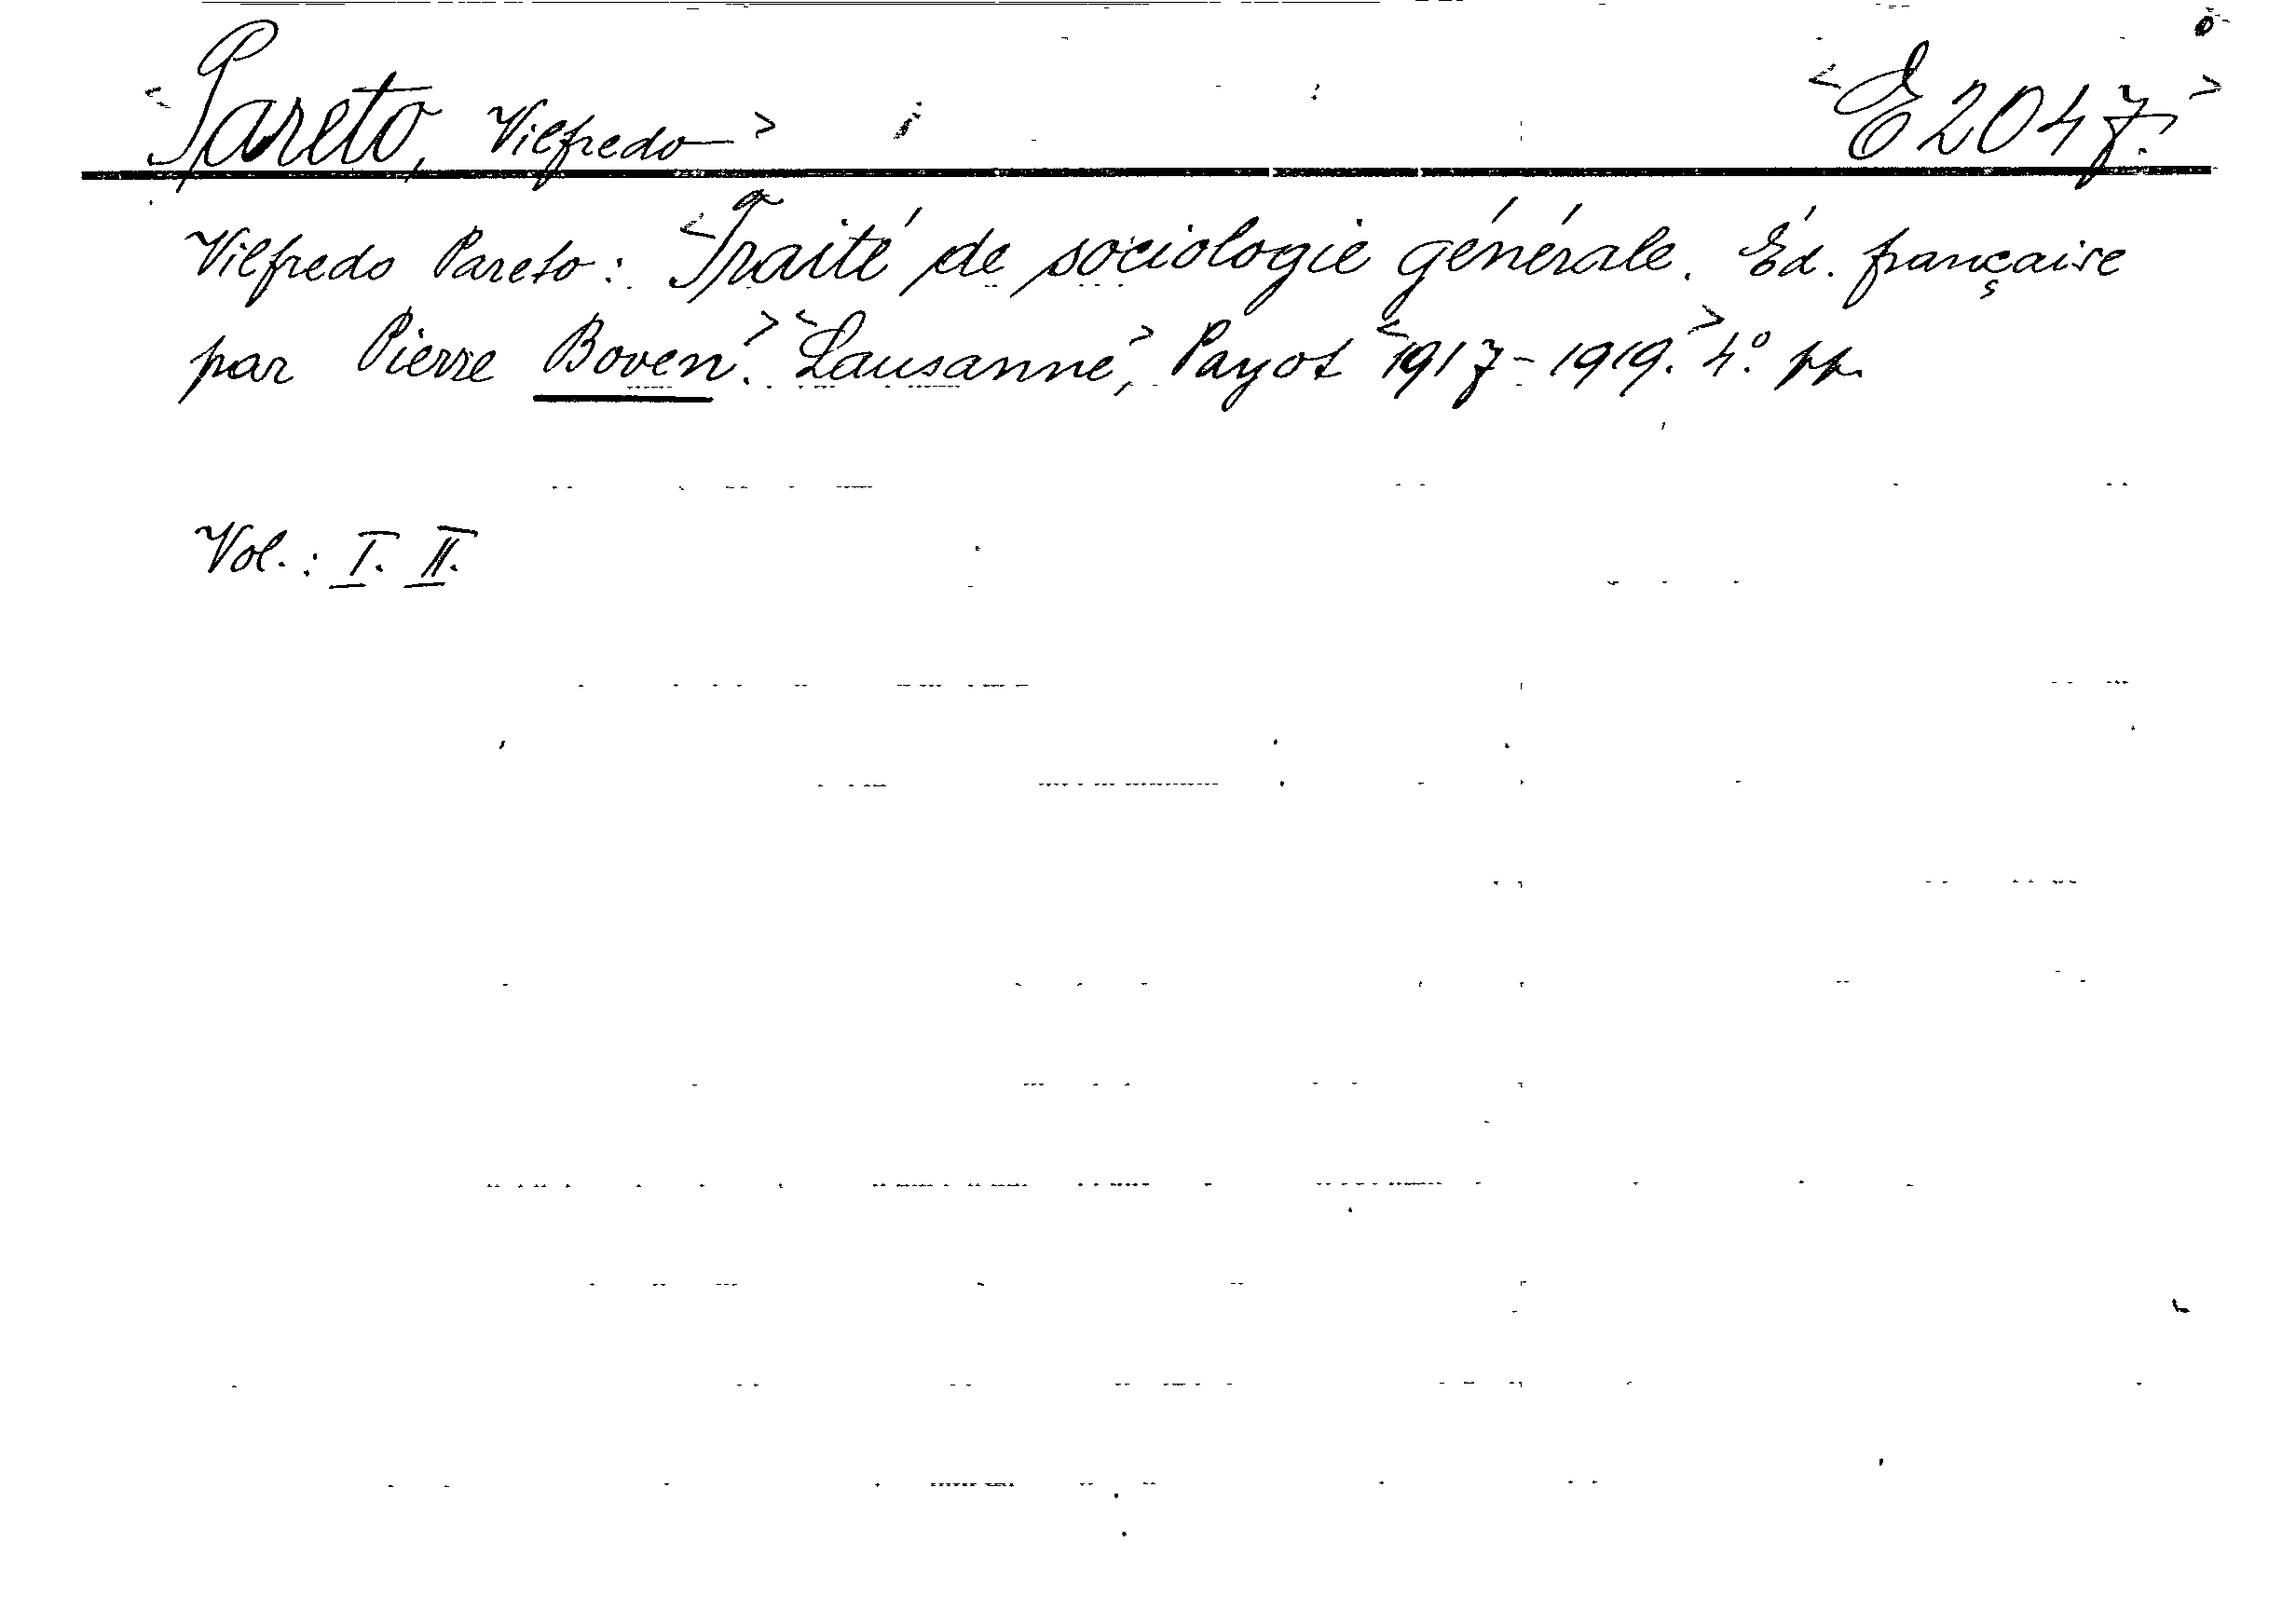 <Pareto, Vilfredo> <E 2047.>
Vilfredo Pareto: <Traité de sociologie générale. Éd. française
par Pierre Boven.> <Lausanne>, Payot <1917-1919.> 4° pp.
Vol.: I. II.